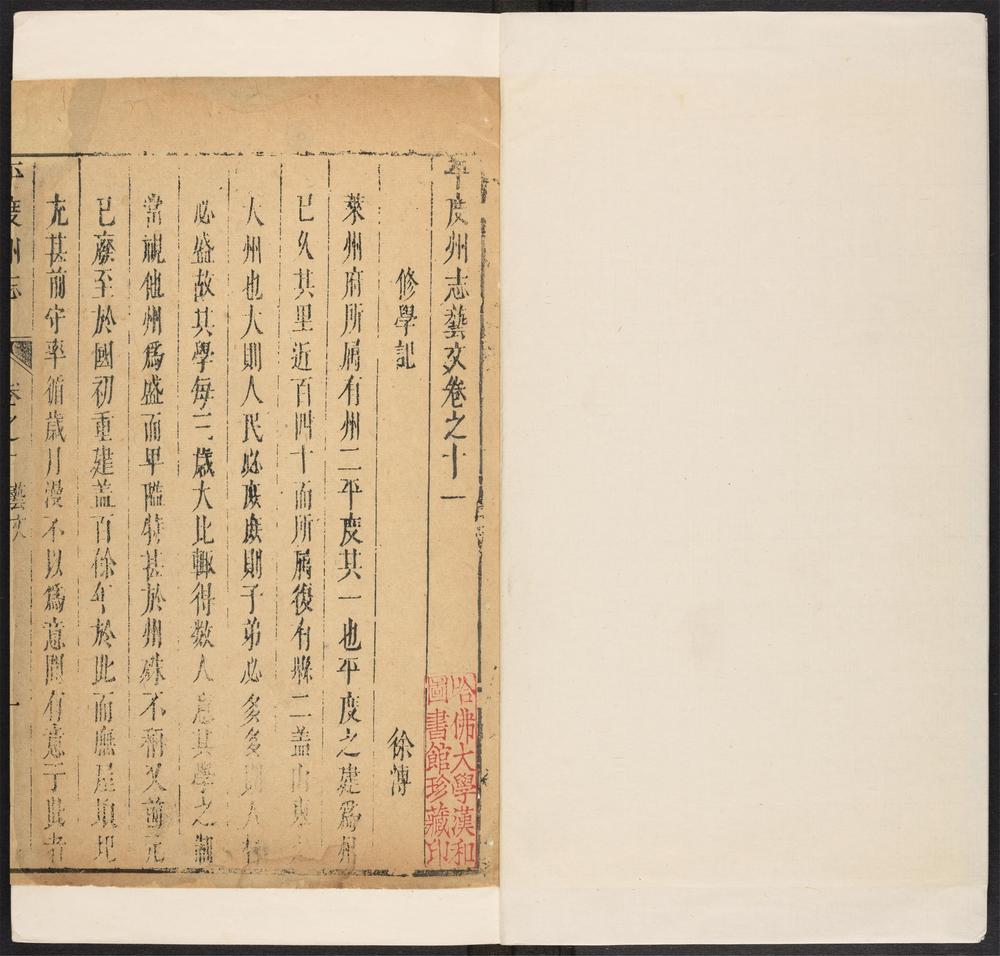 平度州志藝文卷之十一
修學記
徐溥
萊州府所屬有州二平度其一也平度之建爲州
已久其里近百四十而所屬復有縣二盖山東之
大州也大則人民必庶庶則子弟必多多則人材
必盛故其學每三歲大比輙得数人意其學之制
當視他州爲盛而卑隘特甚於州殊不稱又前元
已廢至於國初重建盖百餘年於此而廡屋頹圮
尤甚前守率循歳月漫不以爲意間有意于此者
平度州志 卷之十一 藝文 一
哈佛大學漢和
圖書館珍藏印